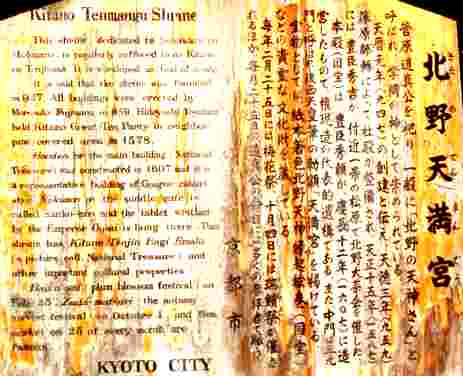 Kitano Tenmangu Shrine
This shrine dedicated to
is popularly
It is worshiped as God of
it is said that the shrine was founded
in 947. All buildings were erected by
Fujiwara in 959. Hideyoshi Toyotomi
held Kitano Great Tea Party in
pine covered area in 1578.
the main building National
Treasure was constructed in 1607 and is a
representative building of Gongen
the middle gate is
called and the tablet written
by the Emperor is hung there. This
shrine has Kitano Tenjin Engi Emaki
picture National Treasure and
other important cultural properties.
plum blossom festival on
Feb. 25 the autumn
festival on October 4 and the
market on 25 of every month are
famous.
KYOTO CITY
北野天満宮
菅原道真公を祀り、一般に「北野の天神さん」と
呼ばれ、学問の神として崇められている。
天暦元年(九四七)の創建と伝え、天徳三年(九五九)
藤原師輔によって社殿が整備され、天正十五年(一五八七)
には豊臣秀吉が付近一帯の松原で北野大茶会を催した。
本殿(国宝)は、豊臣秀頼が慶長十二年(一六〇七)に造
営したもので、権現造の代表的遺構である。また中門は三光
門と
天皇筆の勅額「天満宮」を掲げている。
紙本著色北野天神縁起絵巻(国宝)
など貴重な文化財を蔵している。
毎年二月二十五日には梅花祭、十月四日には瑞饋祭が催さ
れるほか毎月二十五日
京都市